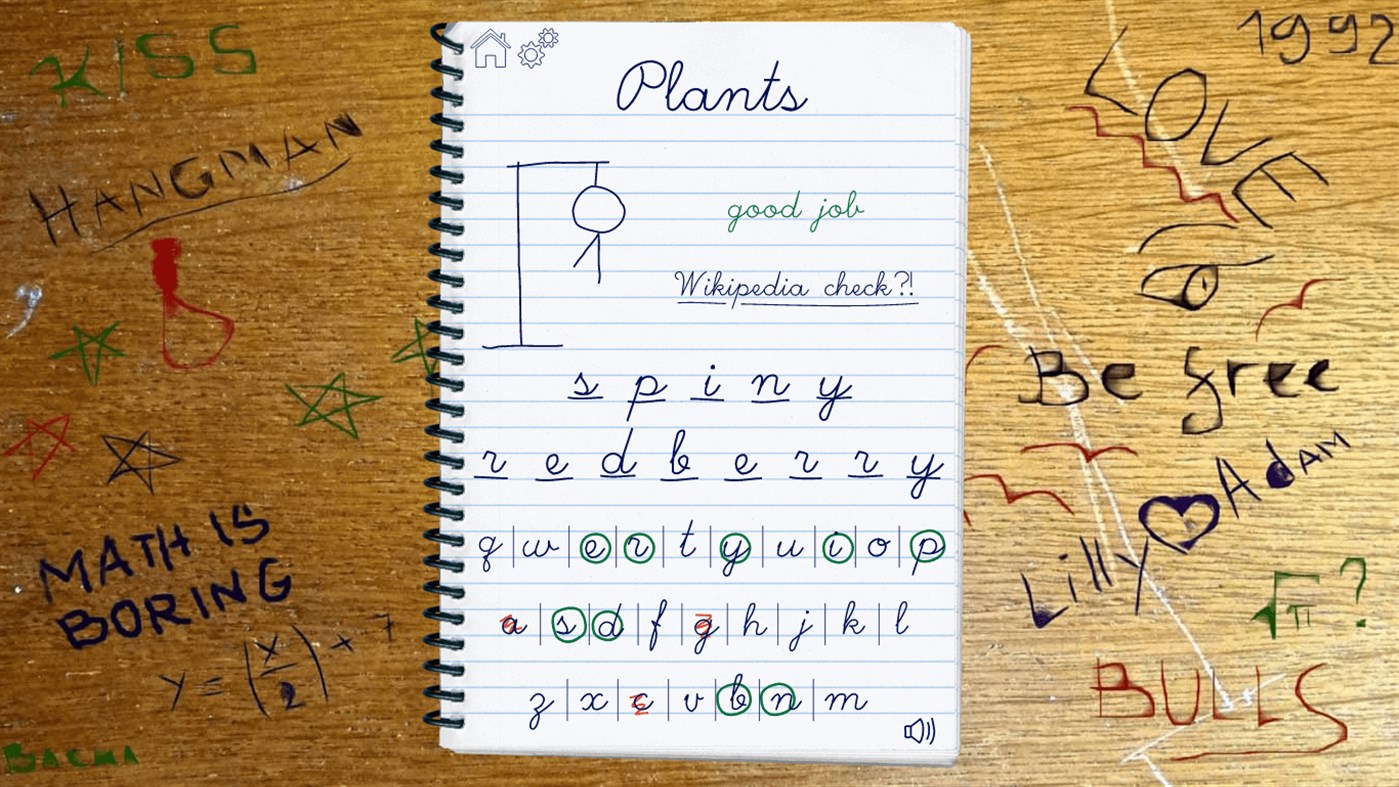 KISS
HANGMAN
MATH IS
BORING
y = (x/2) + 7
BACMA
Plants
good job
Wikipedia check?!
s p i n y
r e d b e r r y
q | w | e | r | t | y | u | i | o | p
a | s | d | f | g | h | j | k | l
z | x | c | v | b | n | m
1992
LOVE
Be free
Lilly ♡ Adam
√π ?
BULLS